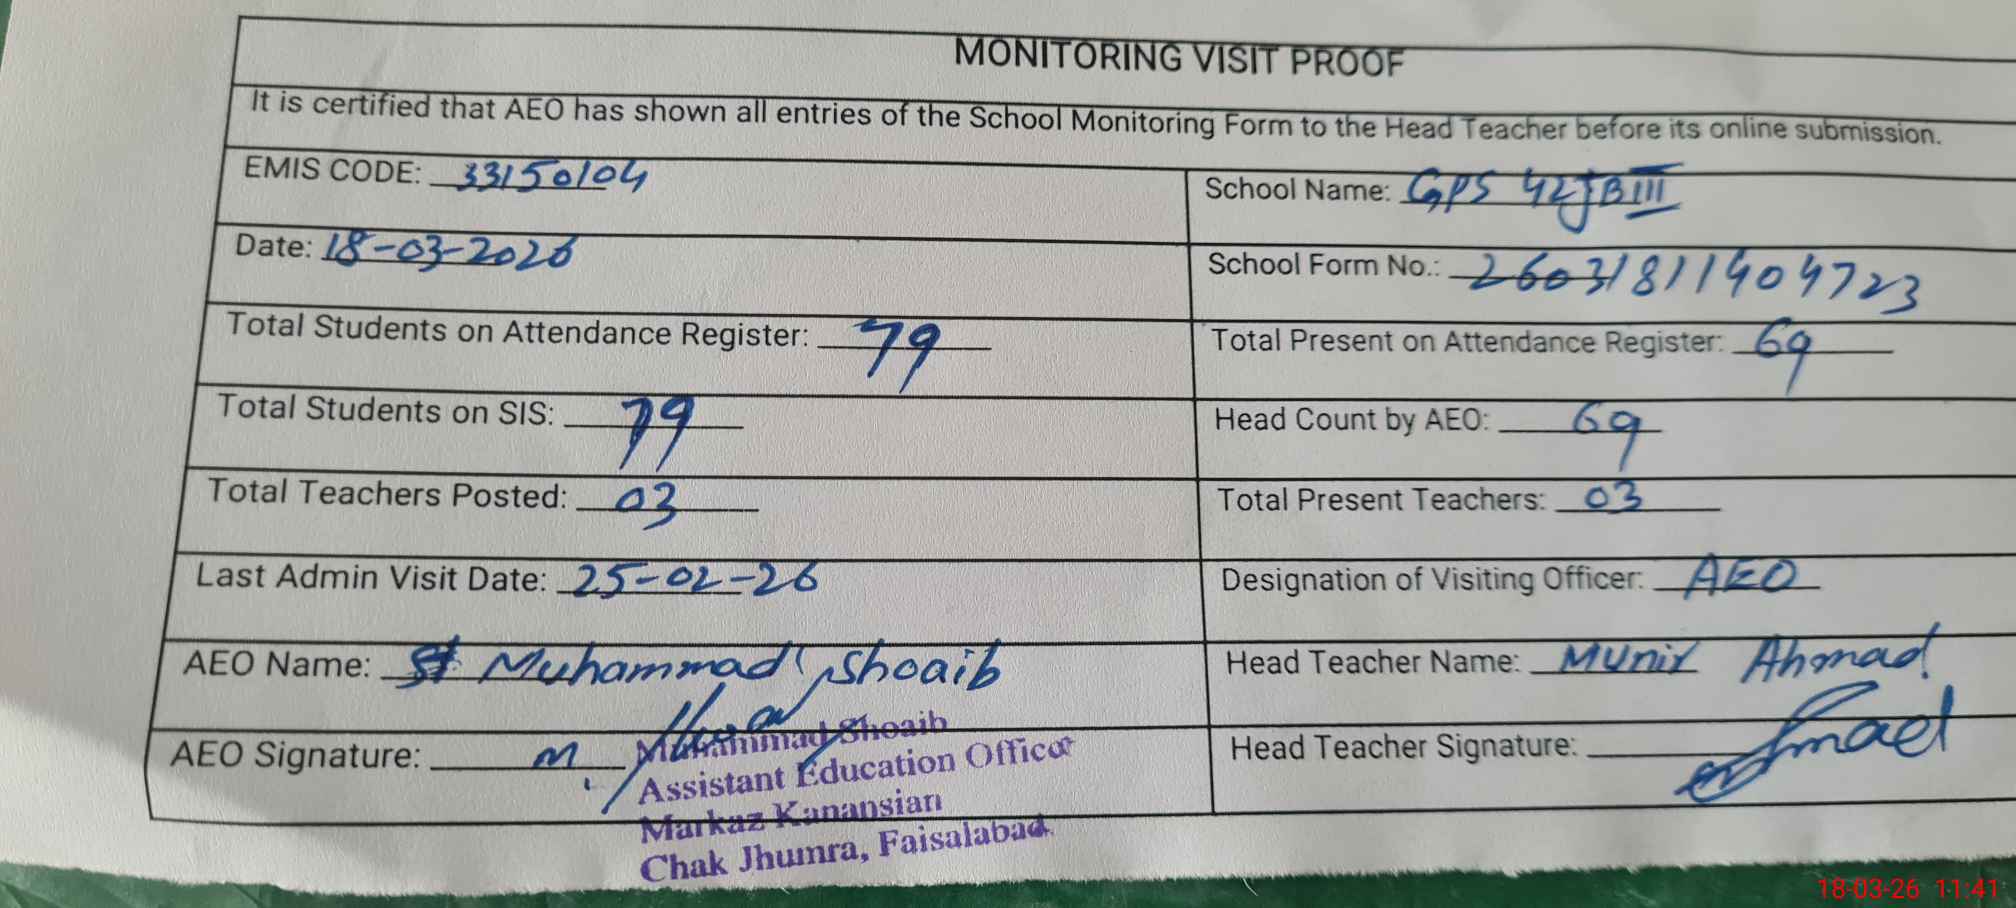 MONITORING VISIT PROOF
It is certified that AEO has shown all entries of the School Monitoring Form to the Head Teacher before its online submission.
EMIS CODE: 33150104
School Name: GPS 42JBIII
Date: 18-03-2026
School Form No.: 260318119404723
Total Students on Attendance Register: 79
Total Present on Attendance Register: 69
Total Students on SIS: 79
Head Count by AEO: 69
Total Teachers Posted: 03
Total Present Teachers: 03
Last Admin Visit Date: 25-02-26
Designation of Visiting Officer: AEO
AEO Name: Muhammad Shoaib
Head Teacher Name: Munir Ahmad
AEO Signature:
Head Teacher Signature:
Muhammad Shoaib
Assistant Education Officer
Markaz Kanansian
Chak Jhumra, Faisalabad.
18-03-26 11:41